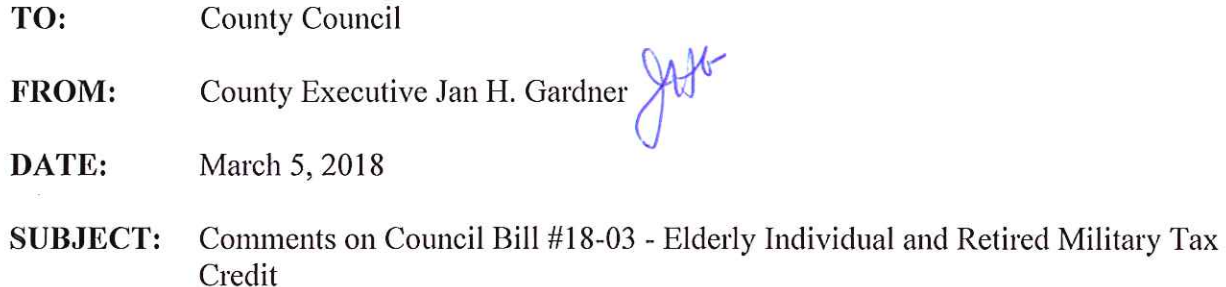 TO: County Council
FROM: County Executive Jan H. Gardner JHG
DATE: March 5, 2018
SUBJECT: Comments on Council Bill #18-03 - Elderly Individual and Retired Military Tax
Credit